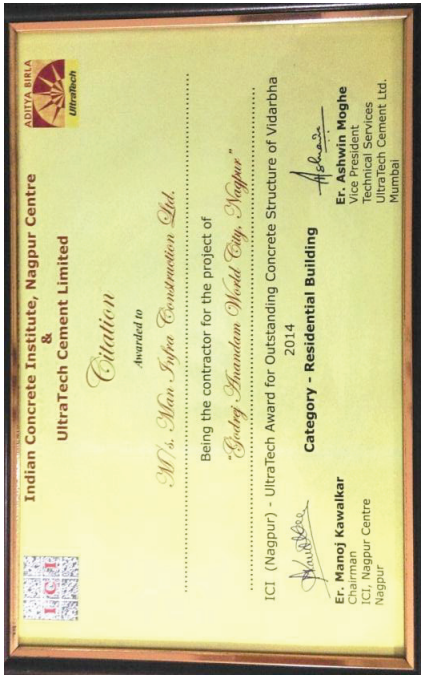 ICI
Indian Concrete Institute, Nagpur Centre
&
UltraTech Cement Limited
ADITYA BIRLA
UltraTech
Citation
Awarded to
M/s. Man Infra Construction Ltd.
Being the contractor for the project of
"Godrej Anandam World City, Nagpur"
ICI (Nagpur) - UltraTech Award for Outstanding Concrete Structure of Vidarbha
2014
Category - Residential Building
Er. Manoj Kawalkar
Chairman
ICI, Nagpur Centre
Nagpur
Er. Ashwin Moghe
Vice President
Technical Services
UltraTech Cement Ltd.
Mumbai